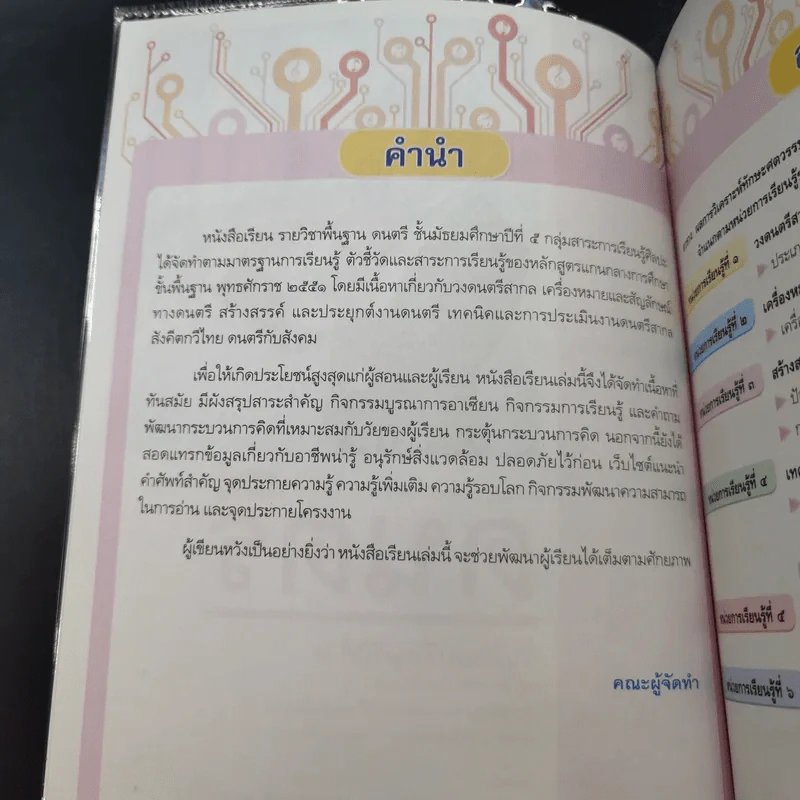 คำนำ
หนังสือเรียน รายวิชาพื้นฐาน ดนตรี ชั้นมัธยมศึกษาปีที่ ๕ กลุ่มสาระการเรียนรู้ศิลปะ
ได้จัดทำตามมาตรฐานการเรียนรู้ ตัวชี้วัดและสาระการเรียนรู้ของหลักสูตรแกนกลางการศึกษา
ขั้นพื้นฐาน พุทธศักราช ๒๕๕๑ โดยมีเนื้อหาเกี่ยวกับวงดนตรีสากล เครื่องหมายและสัญลักษณ์
ทางดนตรี สร้างสรรค์ และประยุกต์งานดนตรี เทคนิคและการประเมินงานดนตรีสากล
สังคีตกวีไทย ดนตรีกับสังคม
เพื่อให้เกิดประโยชน์สูงสุดแก่ผู้สอนและผู้เรียน หนังสือเรียนเล่มนี้จึงได้จัดทำเนื้อหาที่
ทันสมัย มีผังสรุปสาระสำคัญ กิจกรรมบูรณาการอาเซียน กิจกรรมการเรียนรู้ และคำถาม
พัฒนากระบวนการคิดที่เหมาะสมกับวัยของผู้เรียน กระตุ้นกระบวนการคิด นอกจากนี้ยังได้
สอดแทรกข้อมูลเกี่ยวกับอาชีพน่ารู้ อนุรักษ์สิ่งแวดล้อม ปลอดภัยไว้ก่อน เว็บไซต์แนะนำ
คำศัพท์สำคัญ จุดประกายความรู้ ความรู้เพิ่มเติม ความรู้รอบโลก กิจกรรมพัฒนาความสามารถ
ในการอ่าน และจุดประกายโครงงาน
ผู้เขียนหวังเป็นอย่างยิ่งว่า หนังสือเรียนเล่มนี้ จะช่วยพัฒนาผู้เรียนได้เต็มตามศักยภาพ
คณะผู้จัดทำ
ผลการวิเคราะห์ทักษะศตวรรษ
จำแนกตามหน่วยการเรียนรู้
หน่วยการเรียนรู้ที่ ๑
วงดนตรีสา
ประเภ
หน่วยการเรียนรู้ที่ ๒
เครื่องห
เครื่
หน่วยการเรียนรู้ที่ ๓
สร้างส
หน่วยการเรียนรู้ที่ ๔
เท
หน่วยการเรียนรู้ที่ ๕
หน่วยการเรียนรู้ที่ ๖